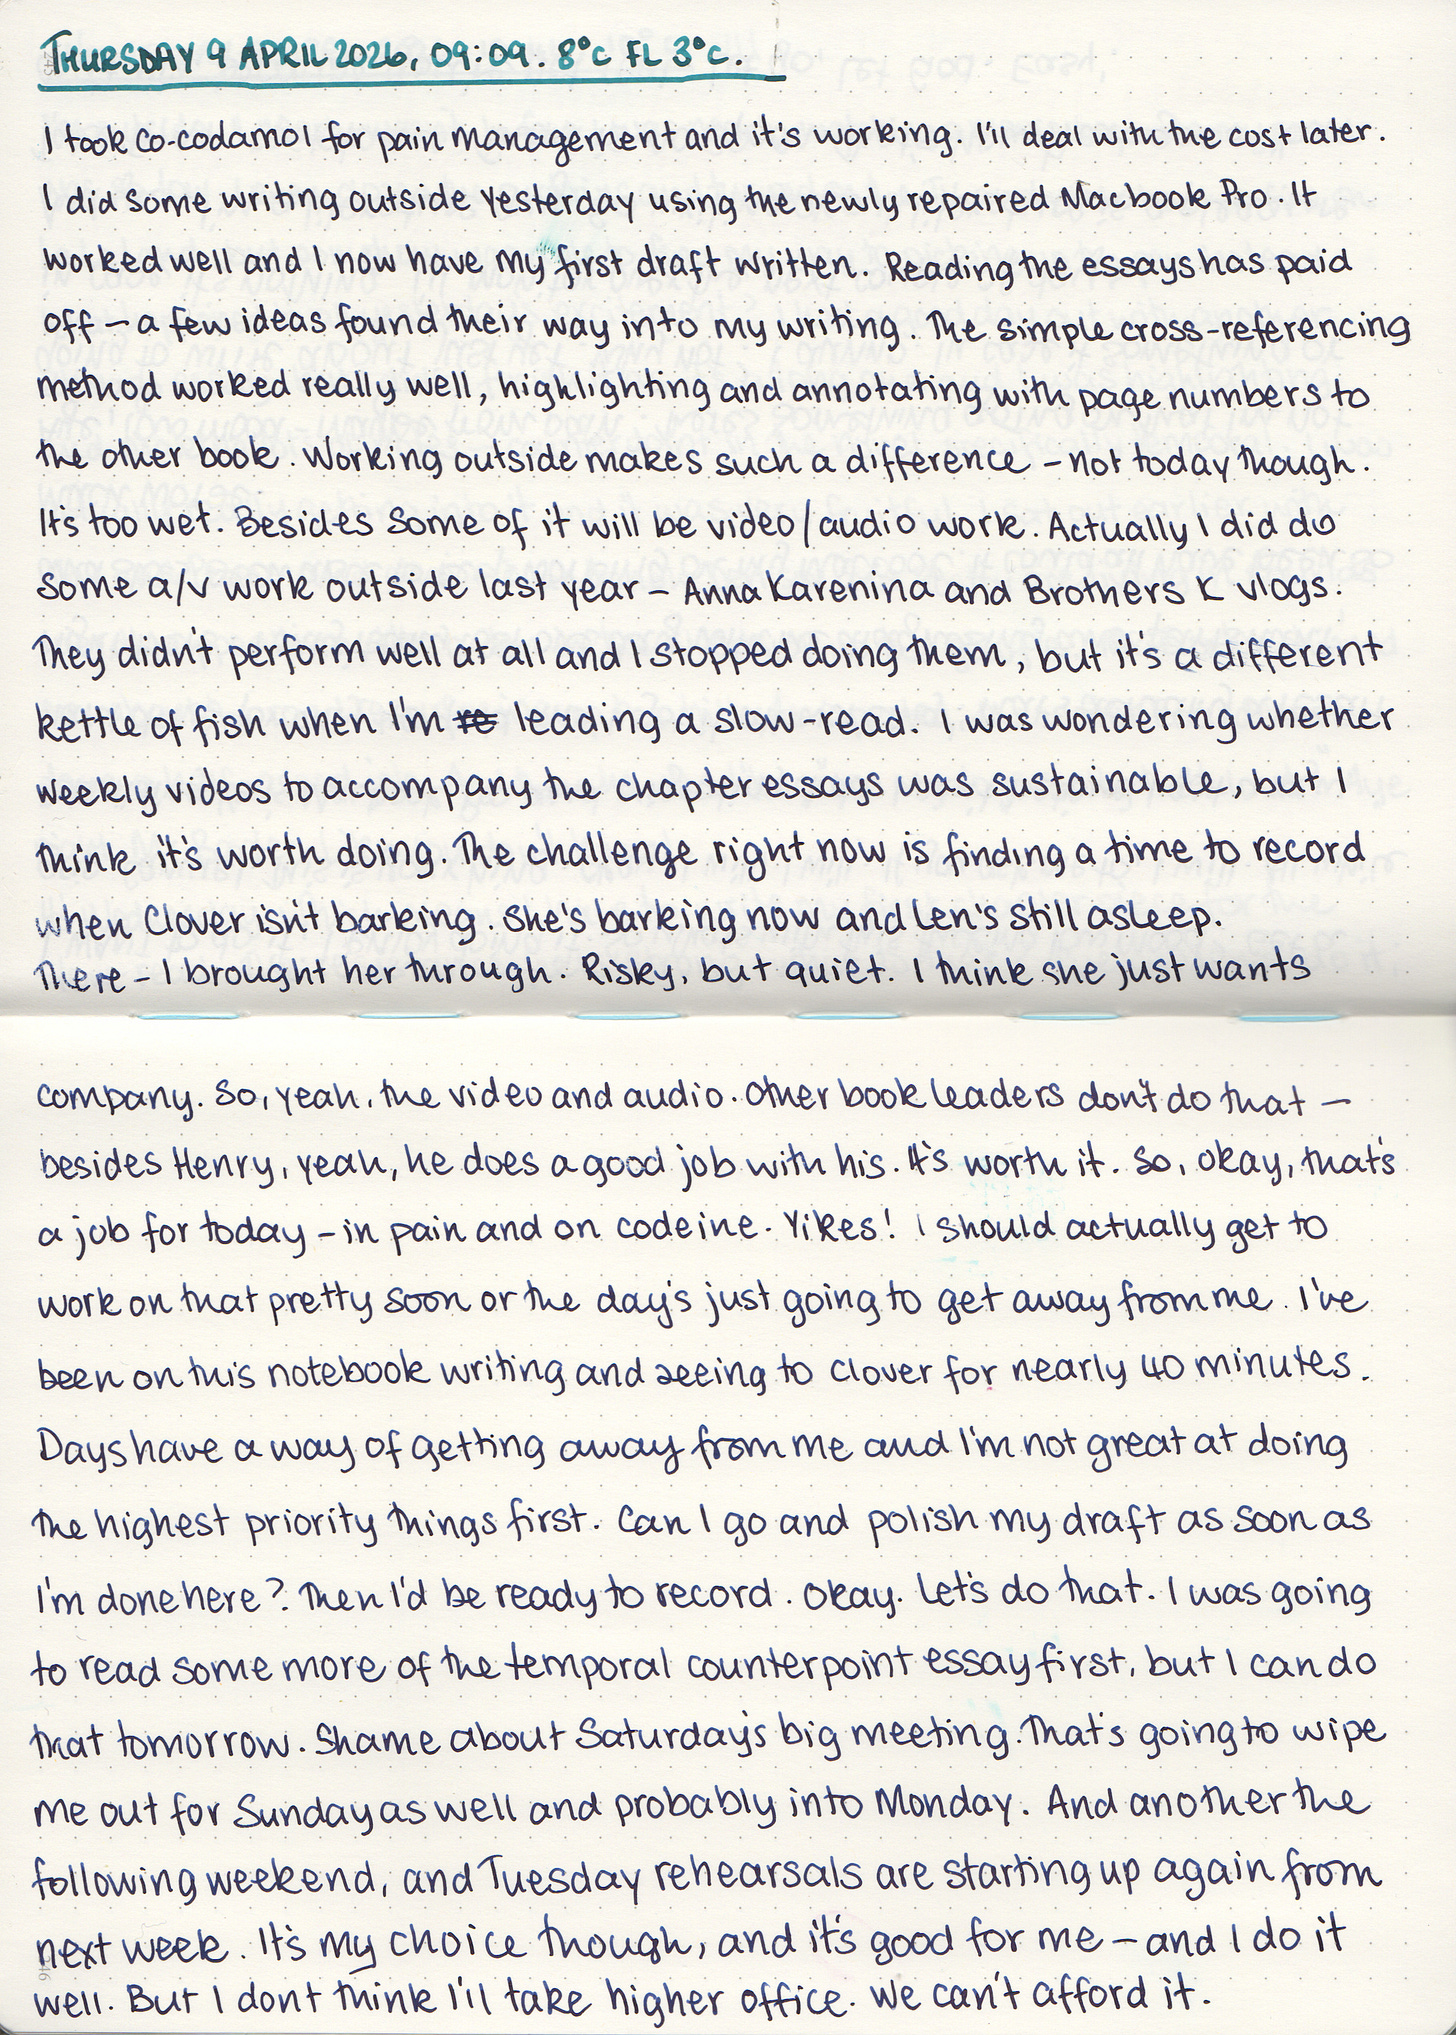 THURSDAY 9 APRIL 2026, 09:09. 8°C FL 3°C.
I took co-codamol for pain management and it's working. I'll deal with the cost later.
I did some writing outside yesterday using the newly repaired Macbook Pro. It
worked well and I now have my first draft written. Reading the essays has paid
off – a few ideas found their way into my writing. The simple cross-referencing
method worked really well, highlighting and annotating with page numbers to
the other book. Working outside makes such a difference – not today though.
It's too wet. Besides some of it will be video/audio work. Actually I did do
some a/v work outside last year – Anna Karenina and Brothers K vlogs.
They didn't perform well at all and I stopped doing them, but it's a different
kettle of fish when I'm re leading a slow-read. I was wondering whether
weekly videos to accompany the chapter essays was sustainable, but I
think it's worth doing. The challenge right now is finding a time to record
when Clover isn't barking. She's barking now and Len's still asleep.
There – I brought her through. Risky, but quiet. I think she just wants
company. So, yeah, the video and audio. Other book leaders don't do that –
besides Henry, yeah, he does a good job with his. It's worth it. So, okay, that's
a job for today – in pain and on codeine. Yikes! I should actually get to
work on that pretty soon or the day's just going to get away from me. I've
been on this notebook writing and seeing to Clover for nearly 40 minutes.
Days have a way of getting away from me and I'm not great at doing
the highest priority things first. Can I go and polish my draft as soon as
I'm done here? Then I'd be ready to record. Okay. Let's do that. I was going
to read some more of the temporal counterpoint essay first, but I can do
that tomorrow. Shame about Saturday's big meeting. That's going to wipe
me out for Sunday as well and probably into Monday. And another the
following weekend, and Tuesday rehearsals are starting up again from
next week. It's my choice though, and it's good for me – and I do it
well. But I dont think I'll take higher office. We can't afford it.